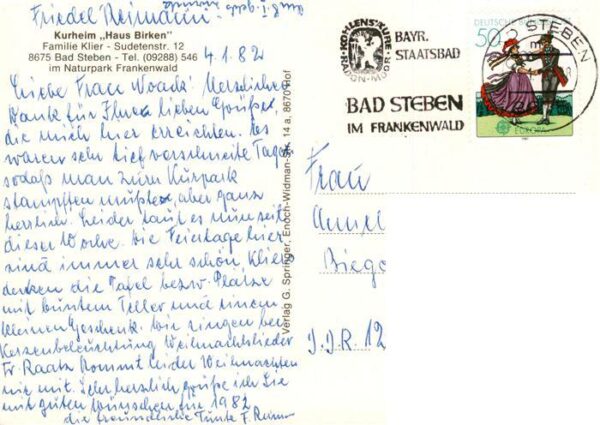 Friedel Reimann.
Kurheim „Haus Birken"
Familie Klier - Sudetenstr. 12
8675 Bad Steben - Tel. (09288) 546
im Naturpark Frankenwald
4.1.82
Liebe Frau Woack! Herzlichen
Dank für Ihre lieben Grüße,
die mich hier erreichten. Es
waren sehr tief verschneite Tage,
sodaß man zum Kurpark
stampfen mußte, aber ganz
herrlich. Leider taut es nun seit
dieser Woche. Die Feiertage hier
sind immer sehr schön. Kliers
decken die Tafel bezw. Plätze
mit buntem Teller und einem
kleinen Geschenk. Wir singen bei
Kerzenbeleuchtung Weihnachtslieder
Fr. Raatz kommt leider Weihnachten
nie mit. Sehr herzlich grüße ich Sie
mit guten Wünschen für 1982
die freundliche Tante F. Reim
Verlag G. Springer, Enoch-Widman-Str. 14 a, 8670 Hof
KOHLENS.KURE
RADON-MOOR
BAYR.
STAATSBAD
BAD STEBEN
IM FRANKENWALD
DEUTSCHE BUND
50
STEBEN
EUROPA
Frau
Biego